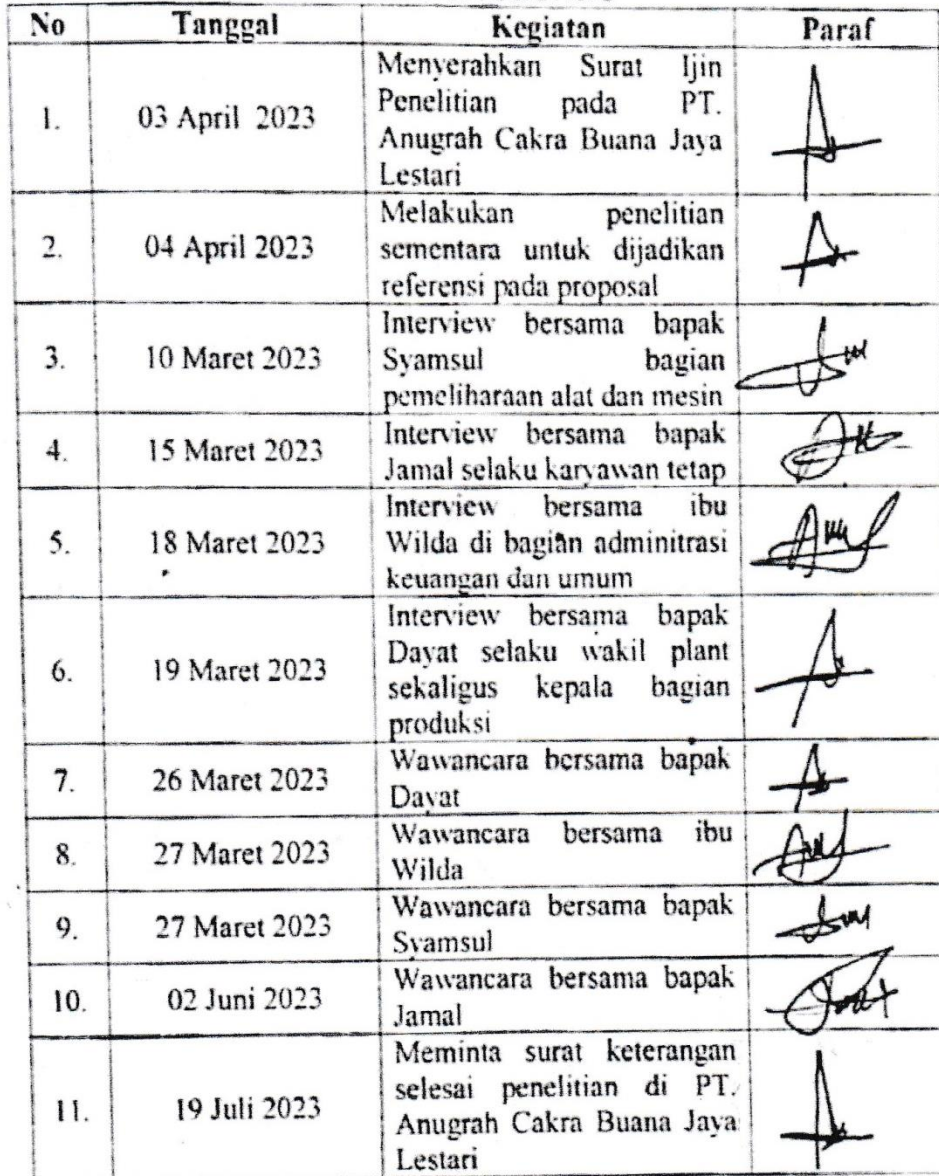 No Tanggal Kegiatan Paraf
1. 03 April 2023 Menyerahkan Surat Ijin
Penelitian pada PT.
Anugrah Cakra Buana Jaya
Lestari
2. 04 April 2023 Melakukan penelitian
sementara untuk dijadikan
referensi pada proposal
3. 10 Maret 2023 Interview bersama bapak
Syamsul bagian
pemeliharaan alat dan mesin
4. 15 Maret 2023 Interview bersama bapak
Jamal selaku karyawan tetap
5. 18 Maret 2023 Interview bersama ibu
Wilda di bagian adminitrasi
keuangan dan umum
6. 19 Maret 2023 Interview bersama bapak
Dayat selaku wakil plant
sekaligus kepala bagian
produksi
7. 26 Maret 2023 Wawancara bersama bapak
Dayat
8. 27 Maret 2023 Wawancara bersama ibu
Wilda
9. 27 Maret 2023 Wawancara bersama bapak
Syamsul
10. 02 Juni 2023 Wawancara bersama bapak
Jamal
11. 19 Juli 2023 Meminta surat keterangan
selesai penelitian di PT.
Anugrah Cakra Buana Jaya
Lestari